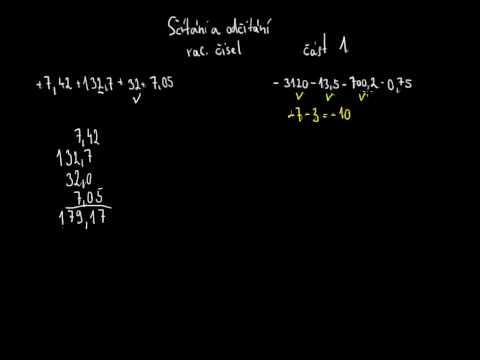 Sčítání a odčítání
rac. čísel část 1
+7,42+132,7+32+7,05
-3120-13,5-700,2-0,75
-7-3=-10
7,42
132,7
32,0
7,05
179,17